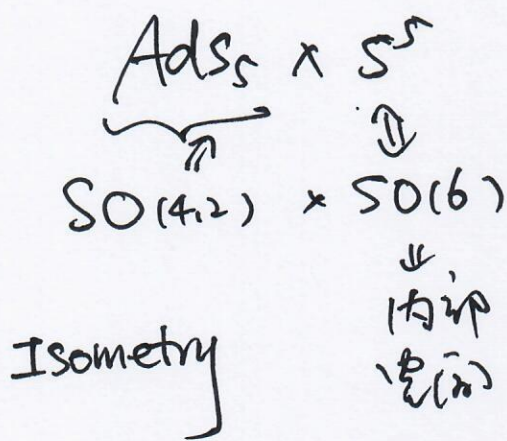 AdS₅ × S⁵
SO(4,2) × SO(6)
内部
Isometry